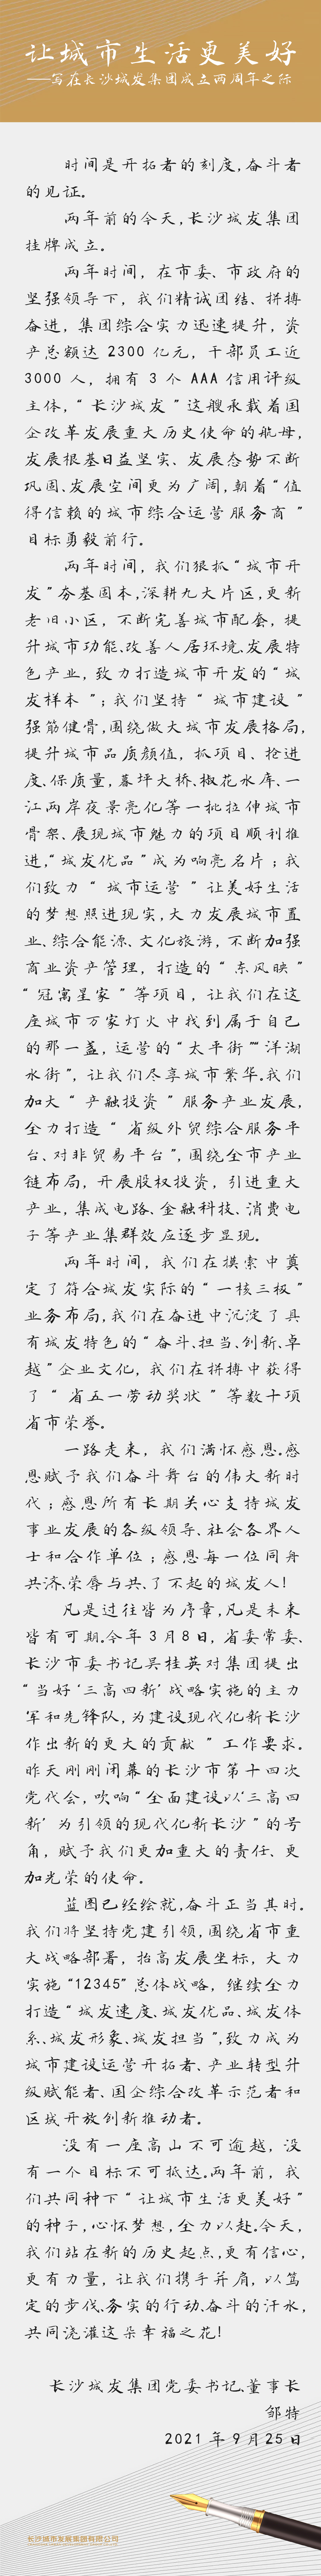 让城市生活更美好
——写在长沙城发集团成立两周年之际
时间是开拓者的刻度,奋斗者
的见证。
两年前的今天,长沙城发集团
挂牌成立。
两年时间，在市委、市政府的
坚强领导下，我们精诚团结、拼搏
奋进，集团综合实力迅速提升，资
产总额达 2300 亿元，干部员工近
3000 人，拥有 3 个 AAA 信用评级
主体，“长沙城发”这艘承载着国
企改革发展重大历史使命的航母，
发展根基日益坚实、发展态势不断
巩固、发展空间更为广阔,朝着“值
得信赖的城市综合运营服务商”
目标勇毅前行。
两年时间，我们狠抓“城市开
发”夯基固本,深耕九大片区,更新
老旧小区，不断完善城市配套，提
升城市功能、改善人居环境、发展特
色产业，致力打造城市开发的“城
发样本”；我们坚持“城市建设”
强筋健骨,围绕做大城市发展格局,
提升城市品质颜值，抓项目、抢进
度、保质量,暮坪大桥、椒花水库、一
江两岸夜景亮化等一批拉伸城市
骨架、展现城市魅力的项目顺利推
进,“城发优品”成为响亮名片；我
们致力“城市运营”让美好生活
的梦想照进现实,大力发展城市置
业、综合能源、文化旅游，不断加强
商业资产管理，打造的“东风映”
“冠寓星家”等项目，让我们在这
座城市万家灯火中找到属于自己
的那一盏，运营的“太平街”“洋湖
水街”，让我们尽享城市繁华。我们
加大“产融投资”服务产业发展,
全力打造“省级外贸综合服务平
台、对非贸易平台”,围绕全市产业
链布局，开展股权投资，引进重大
产业，集成电路、金融科技、消费电
子等产业集群效应逐步显现。
两年时间，我们在摸索中奠
定了符合城发实际的“一核三极”
业务布局,我们在奋进中沉淀了具
有城发特色的“奋斗、担当、创新、卓
越”企业文化，我们在拼搏中获得
了“省五一劳动奖状”等数十项
省市荣誉。
一路走来，我们满怀感恩。感
恩赋予我们奋斗舞台的伟大新时
代；感恩所有长期关心支持城发
事业发展的各级领导、社会各界人
士和合作单位；感恩每一位同舟
共济、荣辱与共、了不起的城发人！
凡是过往皆为序章,凡是未来
皆有可期。今年 3 月8 日，省委常委、
长沙市委书记吴桂英对集团提出
“当好‘三高四新’战略实施的主力
军和先锋队,为建设现代化新长沙
作出新的更大的贡献”工作要求。
昨天刚刚闭幕的长沙市第十四次
党代会，吹响“全面建设以‘三高四
新’为引领的现代化新长沙”的号
角，赋予我们更加重大的责任、更
加光荣的使命。
蓝图已经绘就,奋斗正当其时。
我们将坚持党建引领,围绕省市重
大战略部署，抬高发展坐标，大力
实施“12345”总体战略，继续全力
打造“城发速度、城发优品、城发体
系、城发形象、城发担当”,致力成为
城市建设运营开拓者、产业转型升
级赋能者、国企综合改革示范者和
区域开放创新推动者。
没有一座高山不可逾越，没
有一个目标不可抵达。两年前，我
们共同种下“让城市生活更美好”
的种子,心怀梦想,全力以赴。今天,
我们站在新的历史起点,更有信心,
更有力量，让我们携手并肩，以笃
定的步伐、务实的行动、奋斗的汗水，
共同浇灌这朵幸福之花！
长沙城发集团党委书记、董事长
邹特
2021 年 9 月 25 日
长沙城市发展集团有限公司